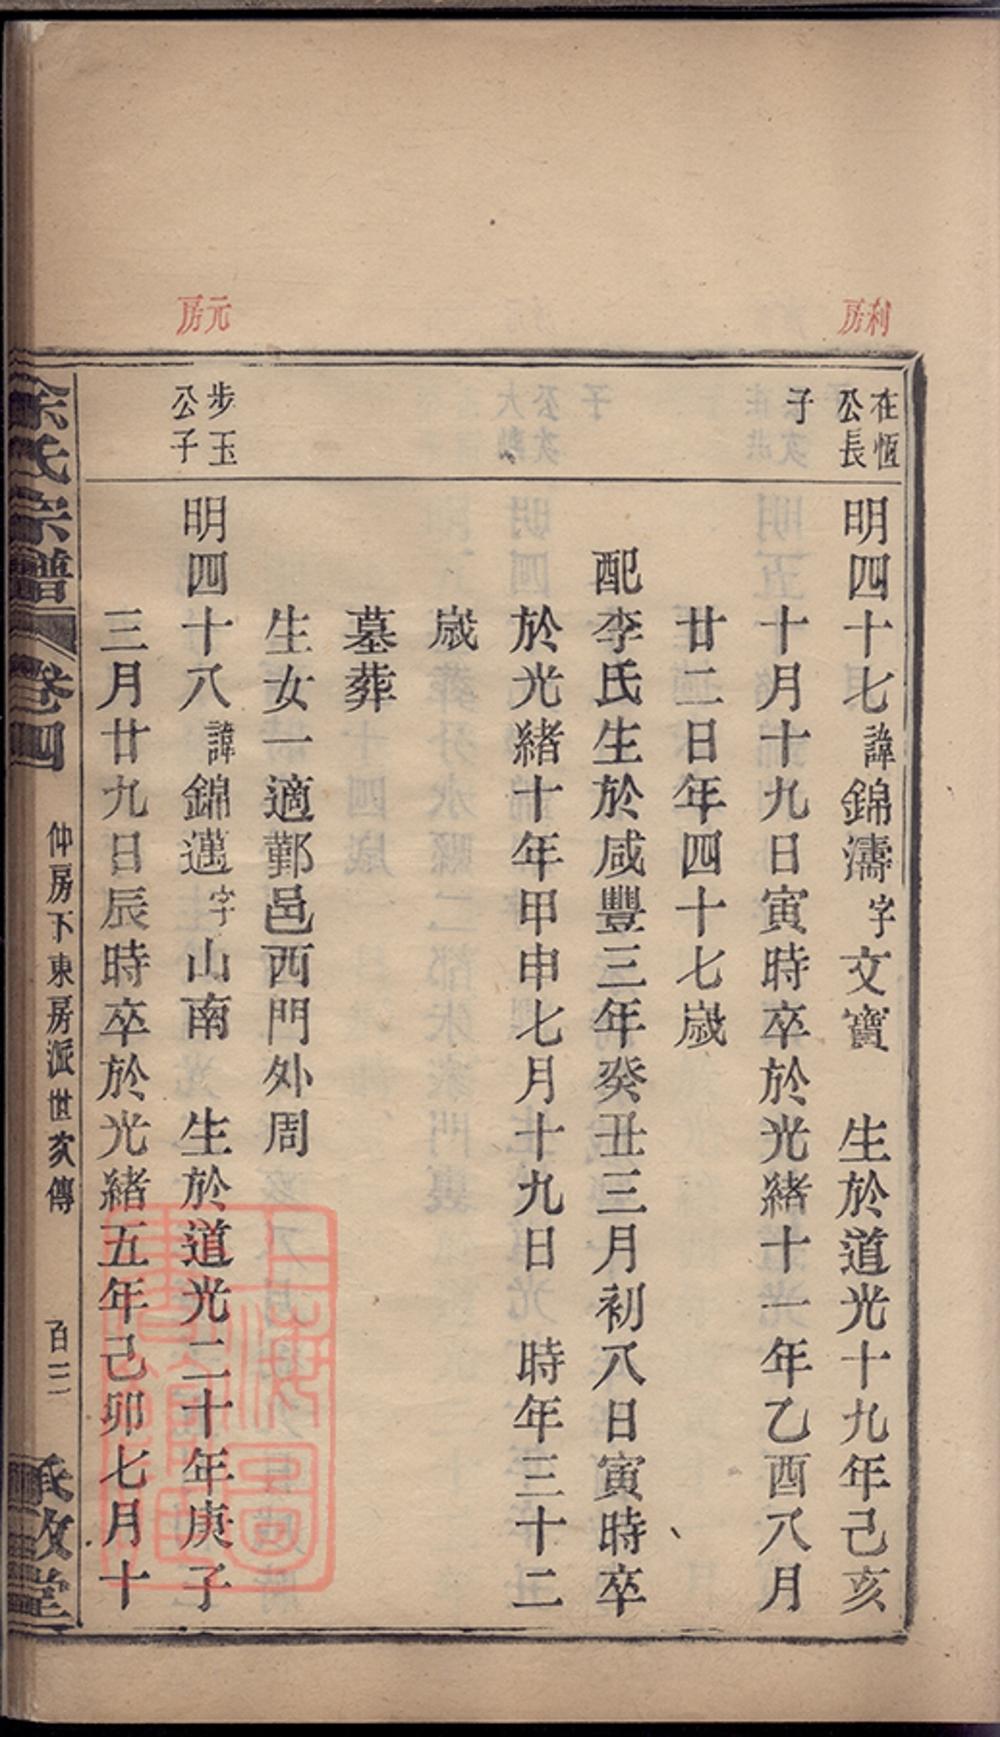 利房
在恆公長子
明四十七諱錦濤字文寶 生於道光十九年己亥
十月十九日寅時卒於光緒十一年乙酉八月
廿二日年四十七歲
配李氏生於咸豐三年癸丑三月初八日寅時卒
於光緒十年甲申七月十九日 時年三十二
歲
墓葬
生女一適鄞邑西門外周
元房
步玉公子
明四十八諱錦邁字山南 生於道光二十年庚子
三月廿九日辰時卒於光緒五年己卯七月十
氏宗譜 卷四 仲房下東房派世次傳 百三
上海圖書館藏